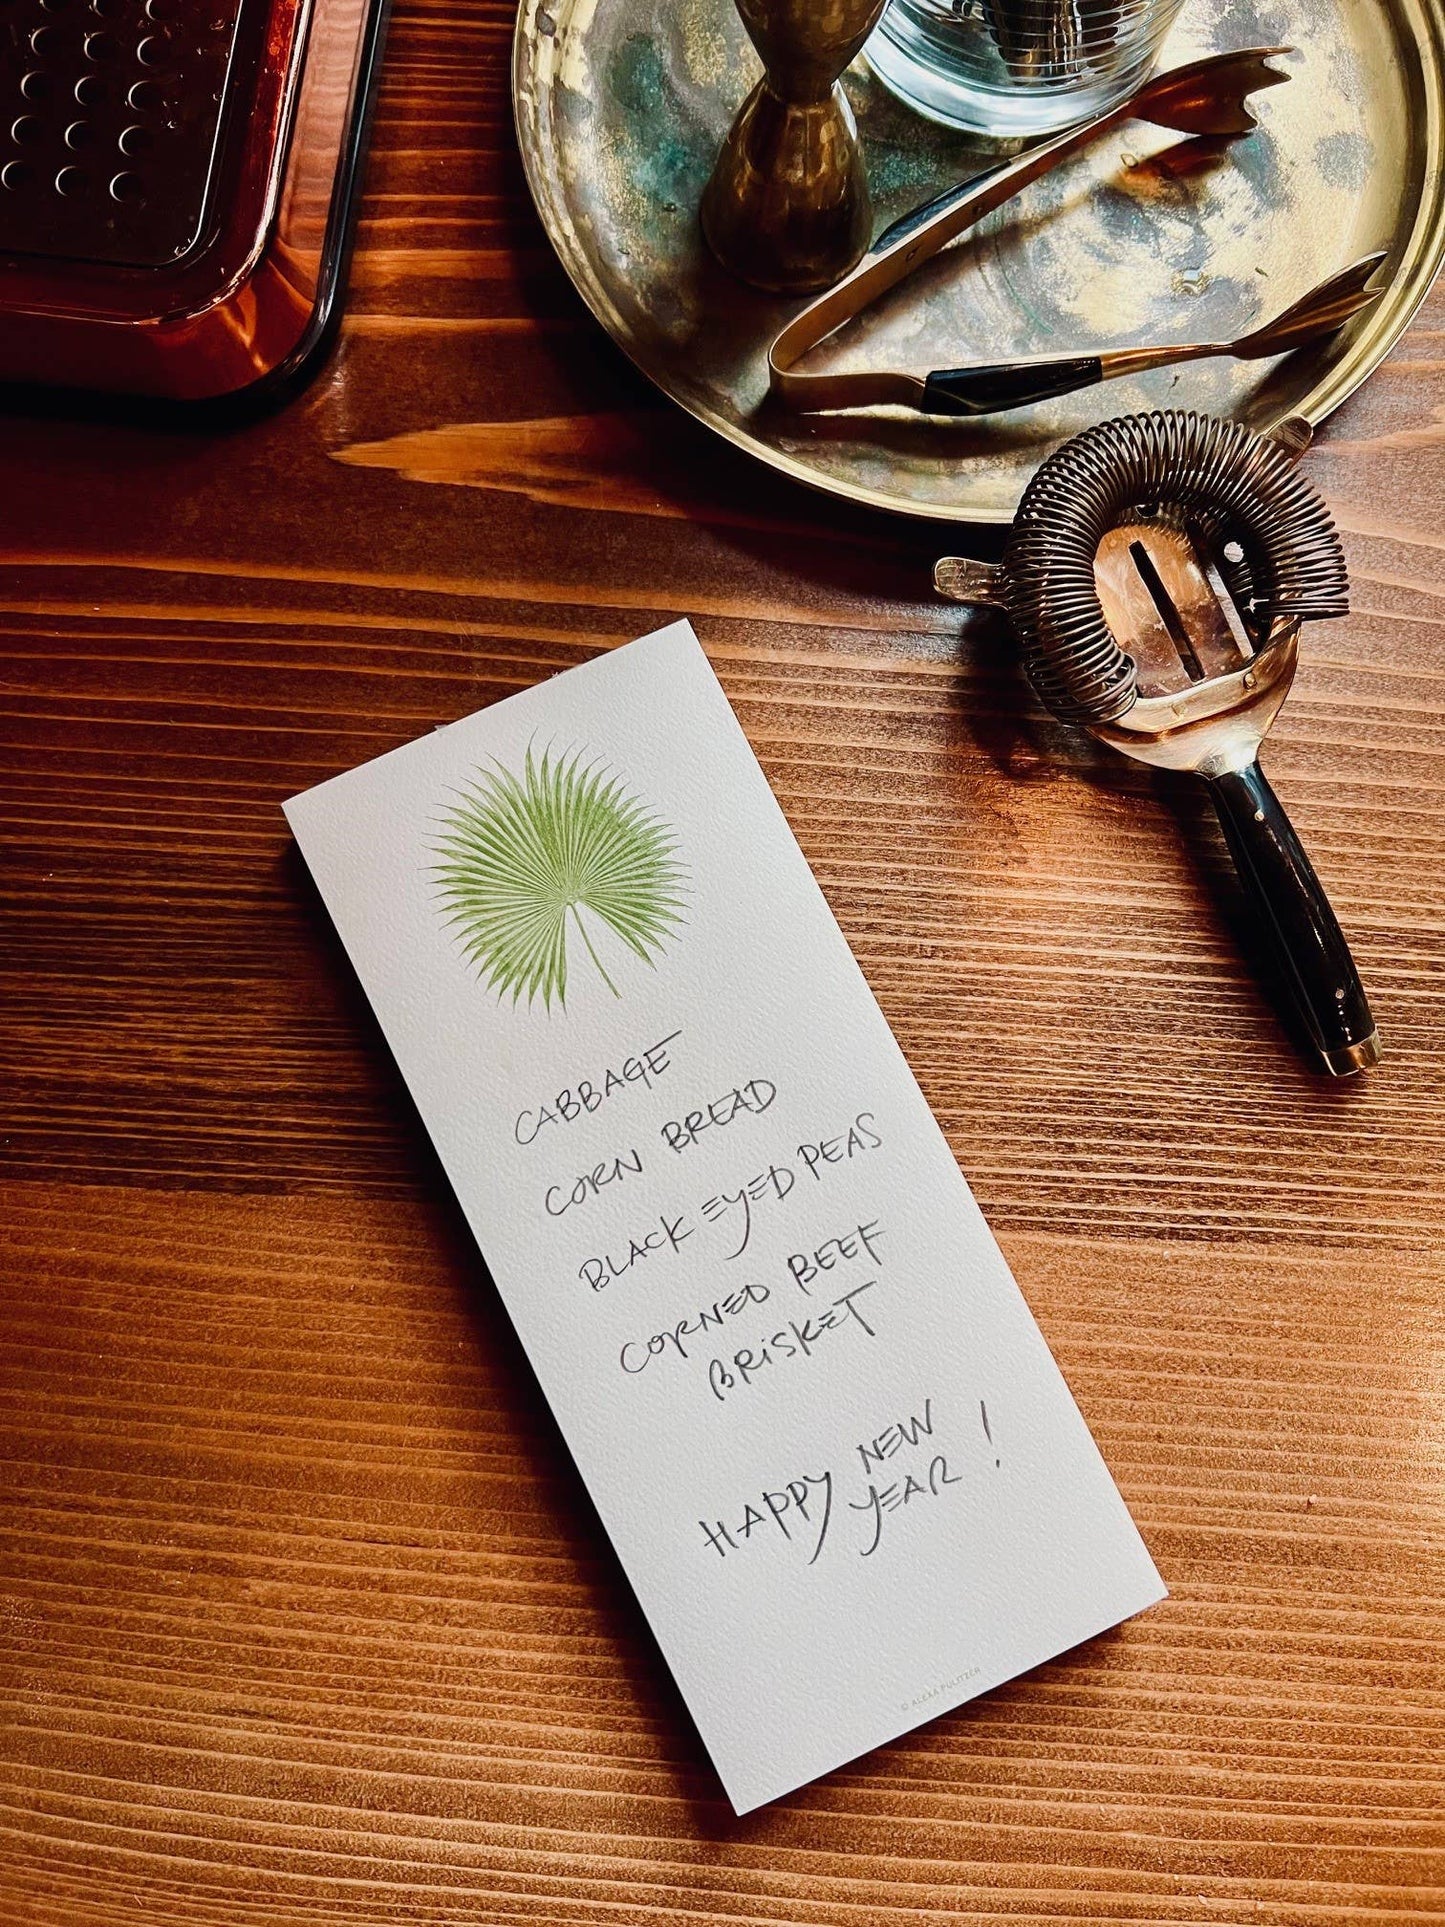 CABBAGE
CORN BREAD
BLACK EYED PEAS
CORNED BEEF
BRISKET
HAPPY NEW
YEAR!
© ALEXA PULITZER